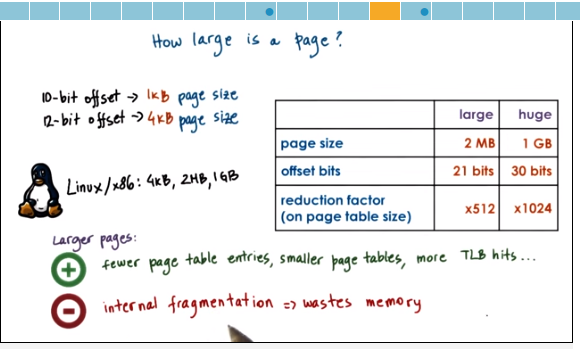 How large is a page?
10-bit offset -> 1kB page size
12-bit offset -> 4kB page size
large huge
page size 2 MB 1 GB
offset bits 21 bits 30 bits
reduction factor
(on page table size) x512 x1024
Linux/x86: 4kB, 2MB, 1GB
Larger pages:
+ fewer page table entries, smaller page tables, more TLB hits...
- internal fragmentation => wastes memory